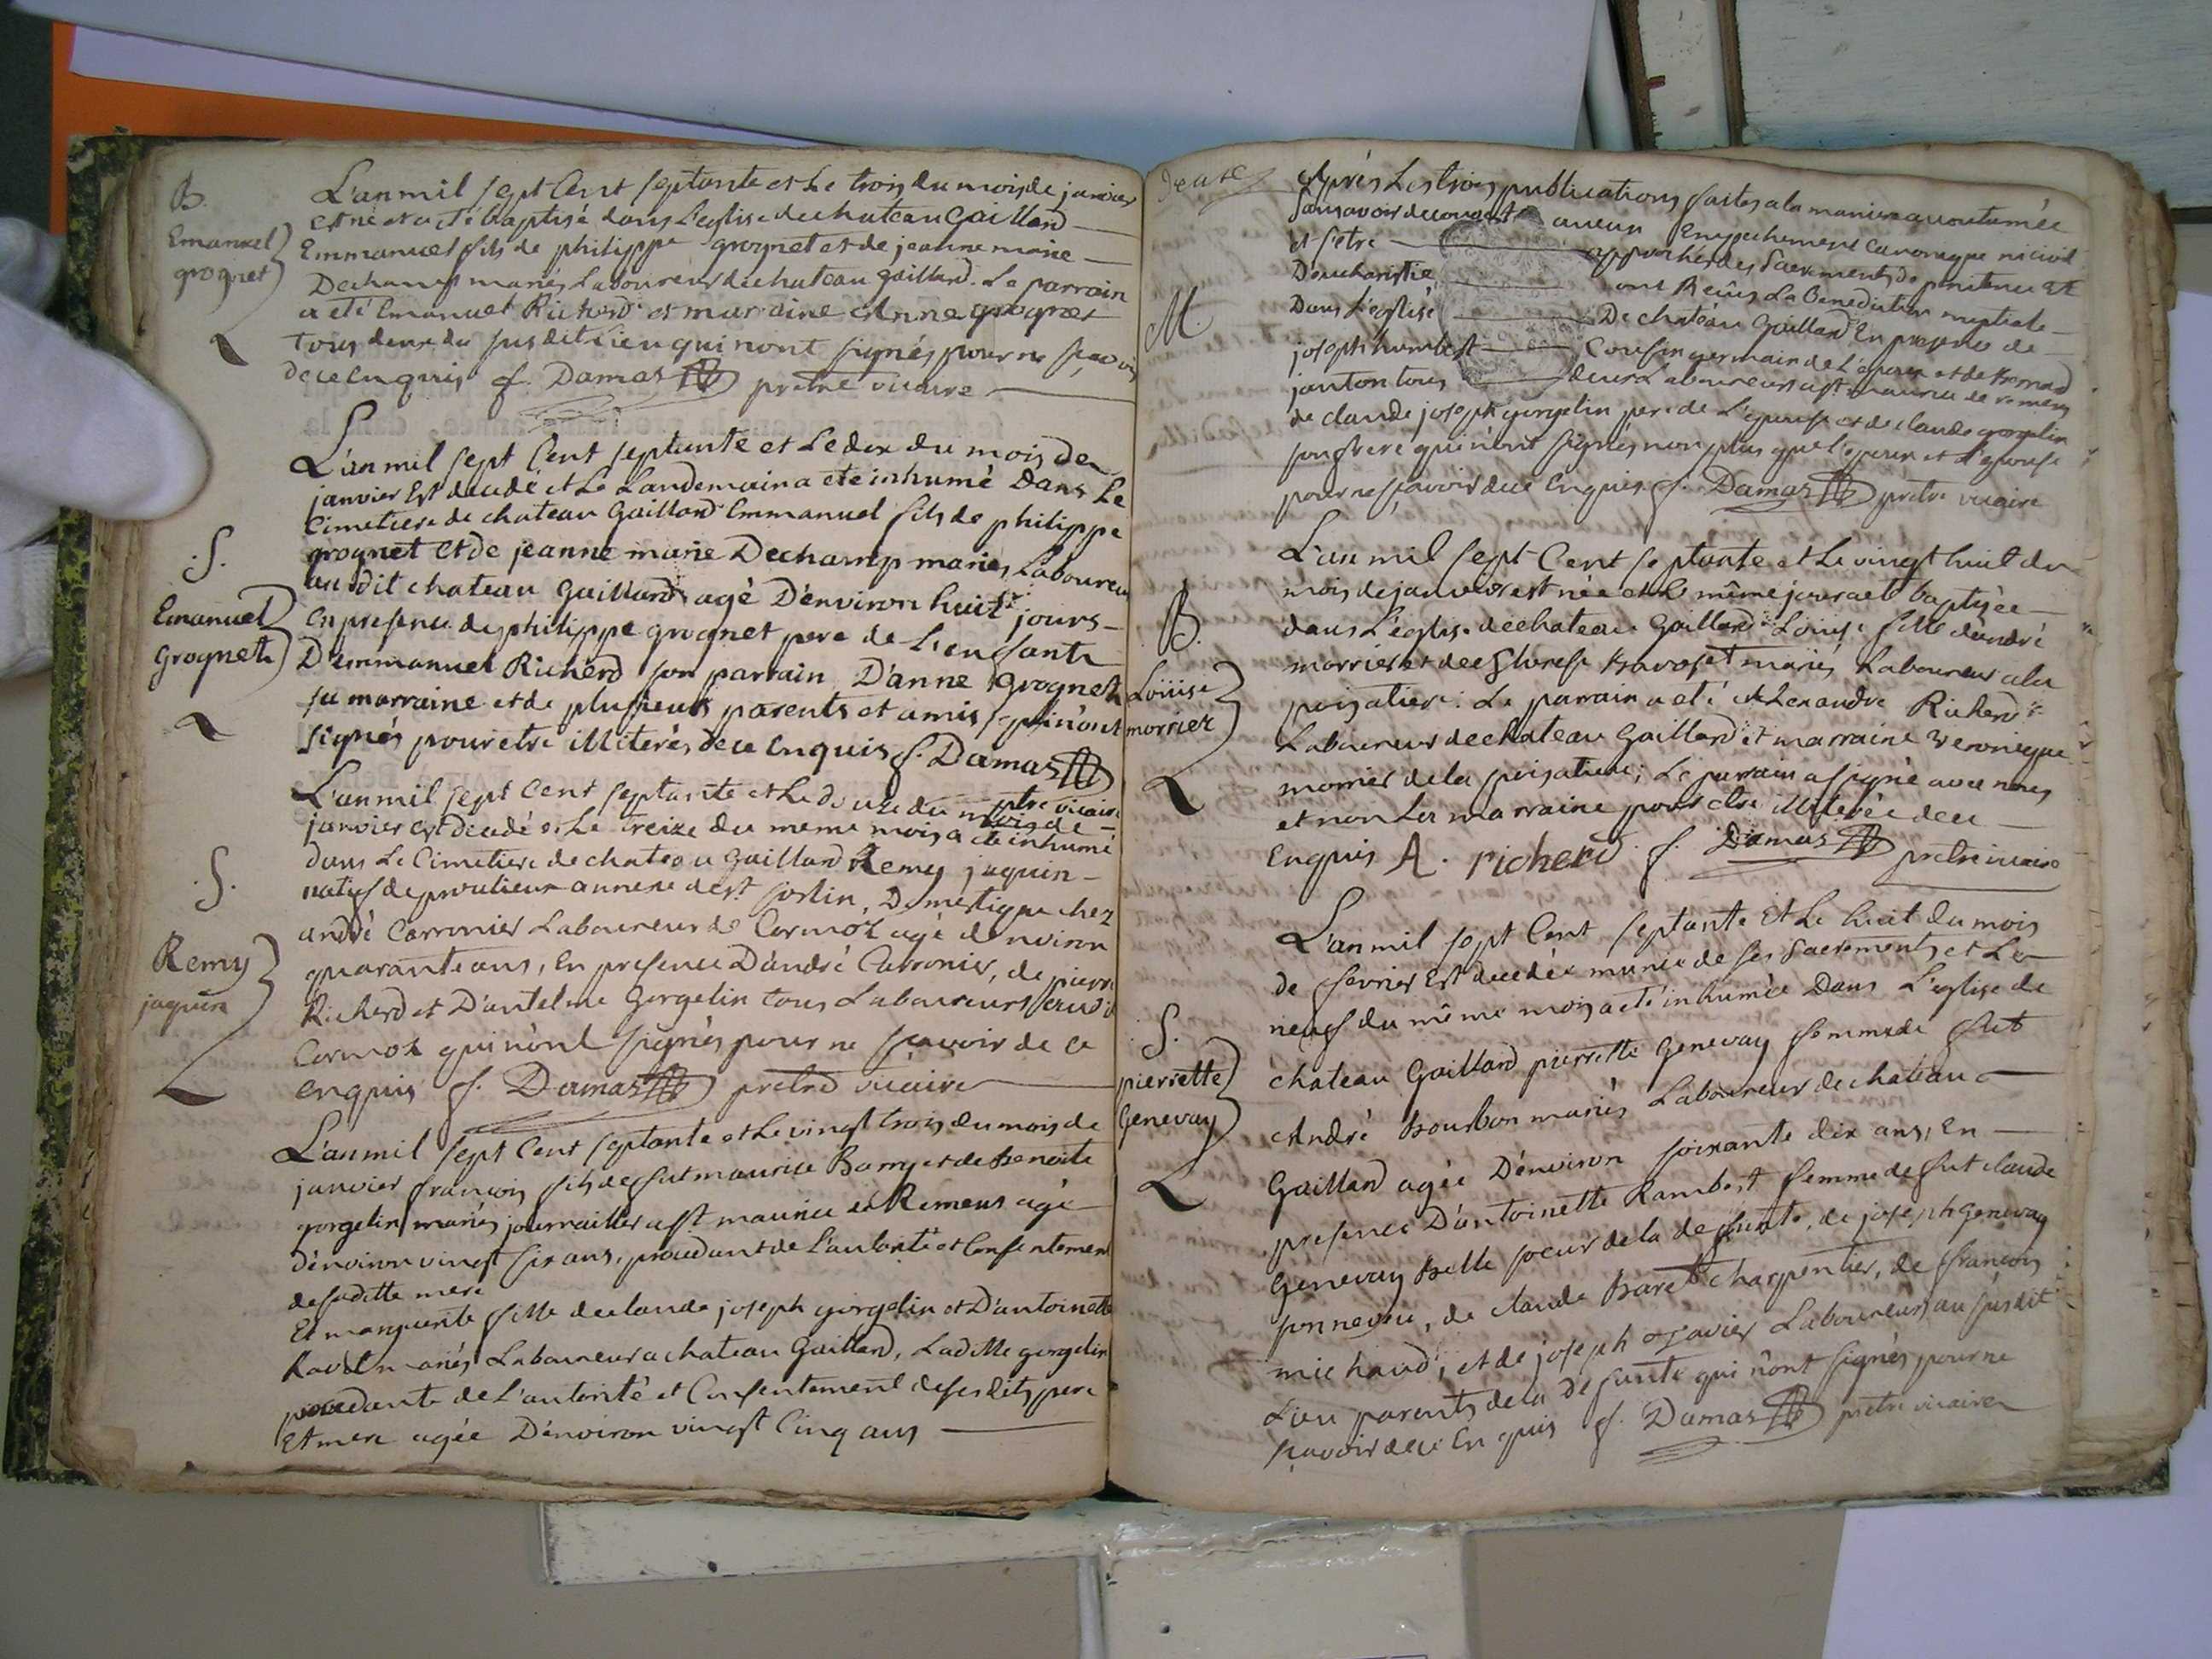 B.
Emanuel
grognet
L'an mil sept Cent septante et Le trois du mois de janvier
est né et a eté baptisé dans L'eglise de chateau Gaillard
Emmanuel fils de philippe grognet et de jeanne marie
Dechamp mariés Laboureur de chateau Gaillard. Le parrain
a eté Emanuel Richerd et marraine Anne grognet
tous deux du susdit Lieu qui n'ont signés pour ne sçavoir
de ce Enquis f. Damas prêtre vicaire
S.
Emanuel
Grognet
L'an mil sept Cent septante et Le dix du mois de
janvier Est decedé et Le Landemain a eté inhumé Dans Le
Cimetiere de chateau Gaillard Emmanuel fils de philippe
grognet et de jeanne marie Dechamp mariés Laboureur
audit chateau Gaillard agé D'environ huit jours
En presence de philippe grognet pere de L'enfant
D'Emmanuel Richerd son parrain D'anne grognet
sa marraine et de plusieurs parents et amis qui n'ont
signés pour etre illiterés de ce Enquis f. Damas
ptre vicaire
S.
Remy
jaquin
L'an mil sept Cent septante et Le douze du mois de
janvier est decedé et Le treize du meme mois a eté inhumé
dans Le Cimetiere de chateau Gaillard Remy jaquin
natif de proulieu annexe de st sorlin, Domestique chez
andré Carronier Laboureur de Cormoz agé d'environ
quarante ans, En presence D'andré Carronier, de pierre
Richerd et D'antelme Gorgelin tous Laboureurs audit
Cormoz qui n'ont signés pour ne sçavoir de ce
enquis f. Damas prêtre vicaire
L'an mil sept Cent septante et Le vingt trois du mois de
janvier françois fils de fut maurice Barry et de Benoite
gorgelin mariés journaillier a st maurice de Remens agé
d'environ vingt six ans, procedant de L'autorité et Consentement
de saditte mere
Et marguerite fille de claude joseph gorgelin et D'antoinette
Ravet mariés Laboureur a chateau Gaillard, Laditte gorgelin
procedante de L'autorité et Consentement de ses dits pere
Et mere agée D'environ vingt Cinq ans
M.
Après Les trois publications faites a la maniere accoutumée
sans avoir decouvert aucun Empechement Canonique ni civil
et s'etre approchés des Sacrements de penitence et
D'eucharistie ont Reçus La Benediction nuptiale
Dans L'eglise De chateau Gaillard En presence de
joseph humbert Cousin germain de L'epoux et de Bernard
janton tous deux Laboureurs a st maurice de remens
de claude joseph gorgelin pere de L'epouse et de claude gorgelin
son frere qui n'ont signés non plus que l'epoux et L'epouse
pour ne sçavoir de ce Enquis f. Damas prêtre vicaire
B.
Loüise
morrier
L'an mil sept Cent septante et Le vingt huit du
mois de janvier est née et Le même jour a eté baptisée
dans L'église de chateau Gaillard Loüise fille d'andré
morrier et de mariés Laboureur a la
poisatiere. Le parrain a eté Alexandre Richerd
Laboureur de chateau Gaillard et marraine Veronique
morrier de la poisatiere; Le parrain a signé avec nous
et non La marraine pour etre illiterée de ce
Enquis A. richerd f. Damas prêtre vicaire
S.
pierrette
Genevay
L'an mil sept Cent septante Et Le huit du mois
de fevrier Est decedée munie de ses Sacrements et Le
neuf du même mois a eté inhumée Dans L'église de
chateau Gaillard pierrette Genevay femme de fut
André Bourbon mariés Laboureur de chateau
Gaillard agée D'environ soixante dix ans, En
presence D'antoinette Rambert femme de fut claude
Genevay Belle soeur de la defunte, de joseph Genevay
son neveu, de claude Baret charpentier, de françois
michaud, et de joseph javier Laboureurs au susdit
Lieu parents de la defunte qui n'ont signés pour ne
sçavoir de ce Enquis f. Damas prêtre vicaire